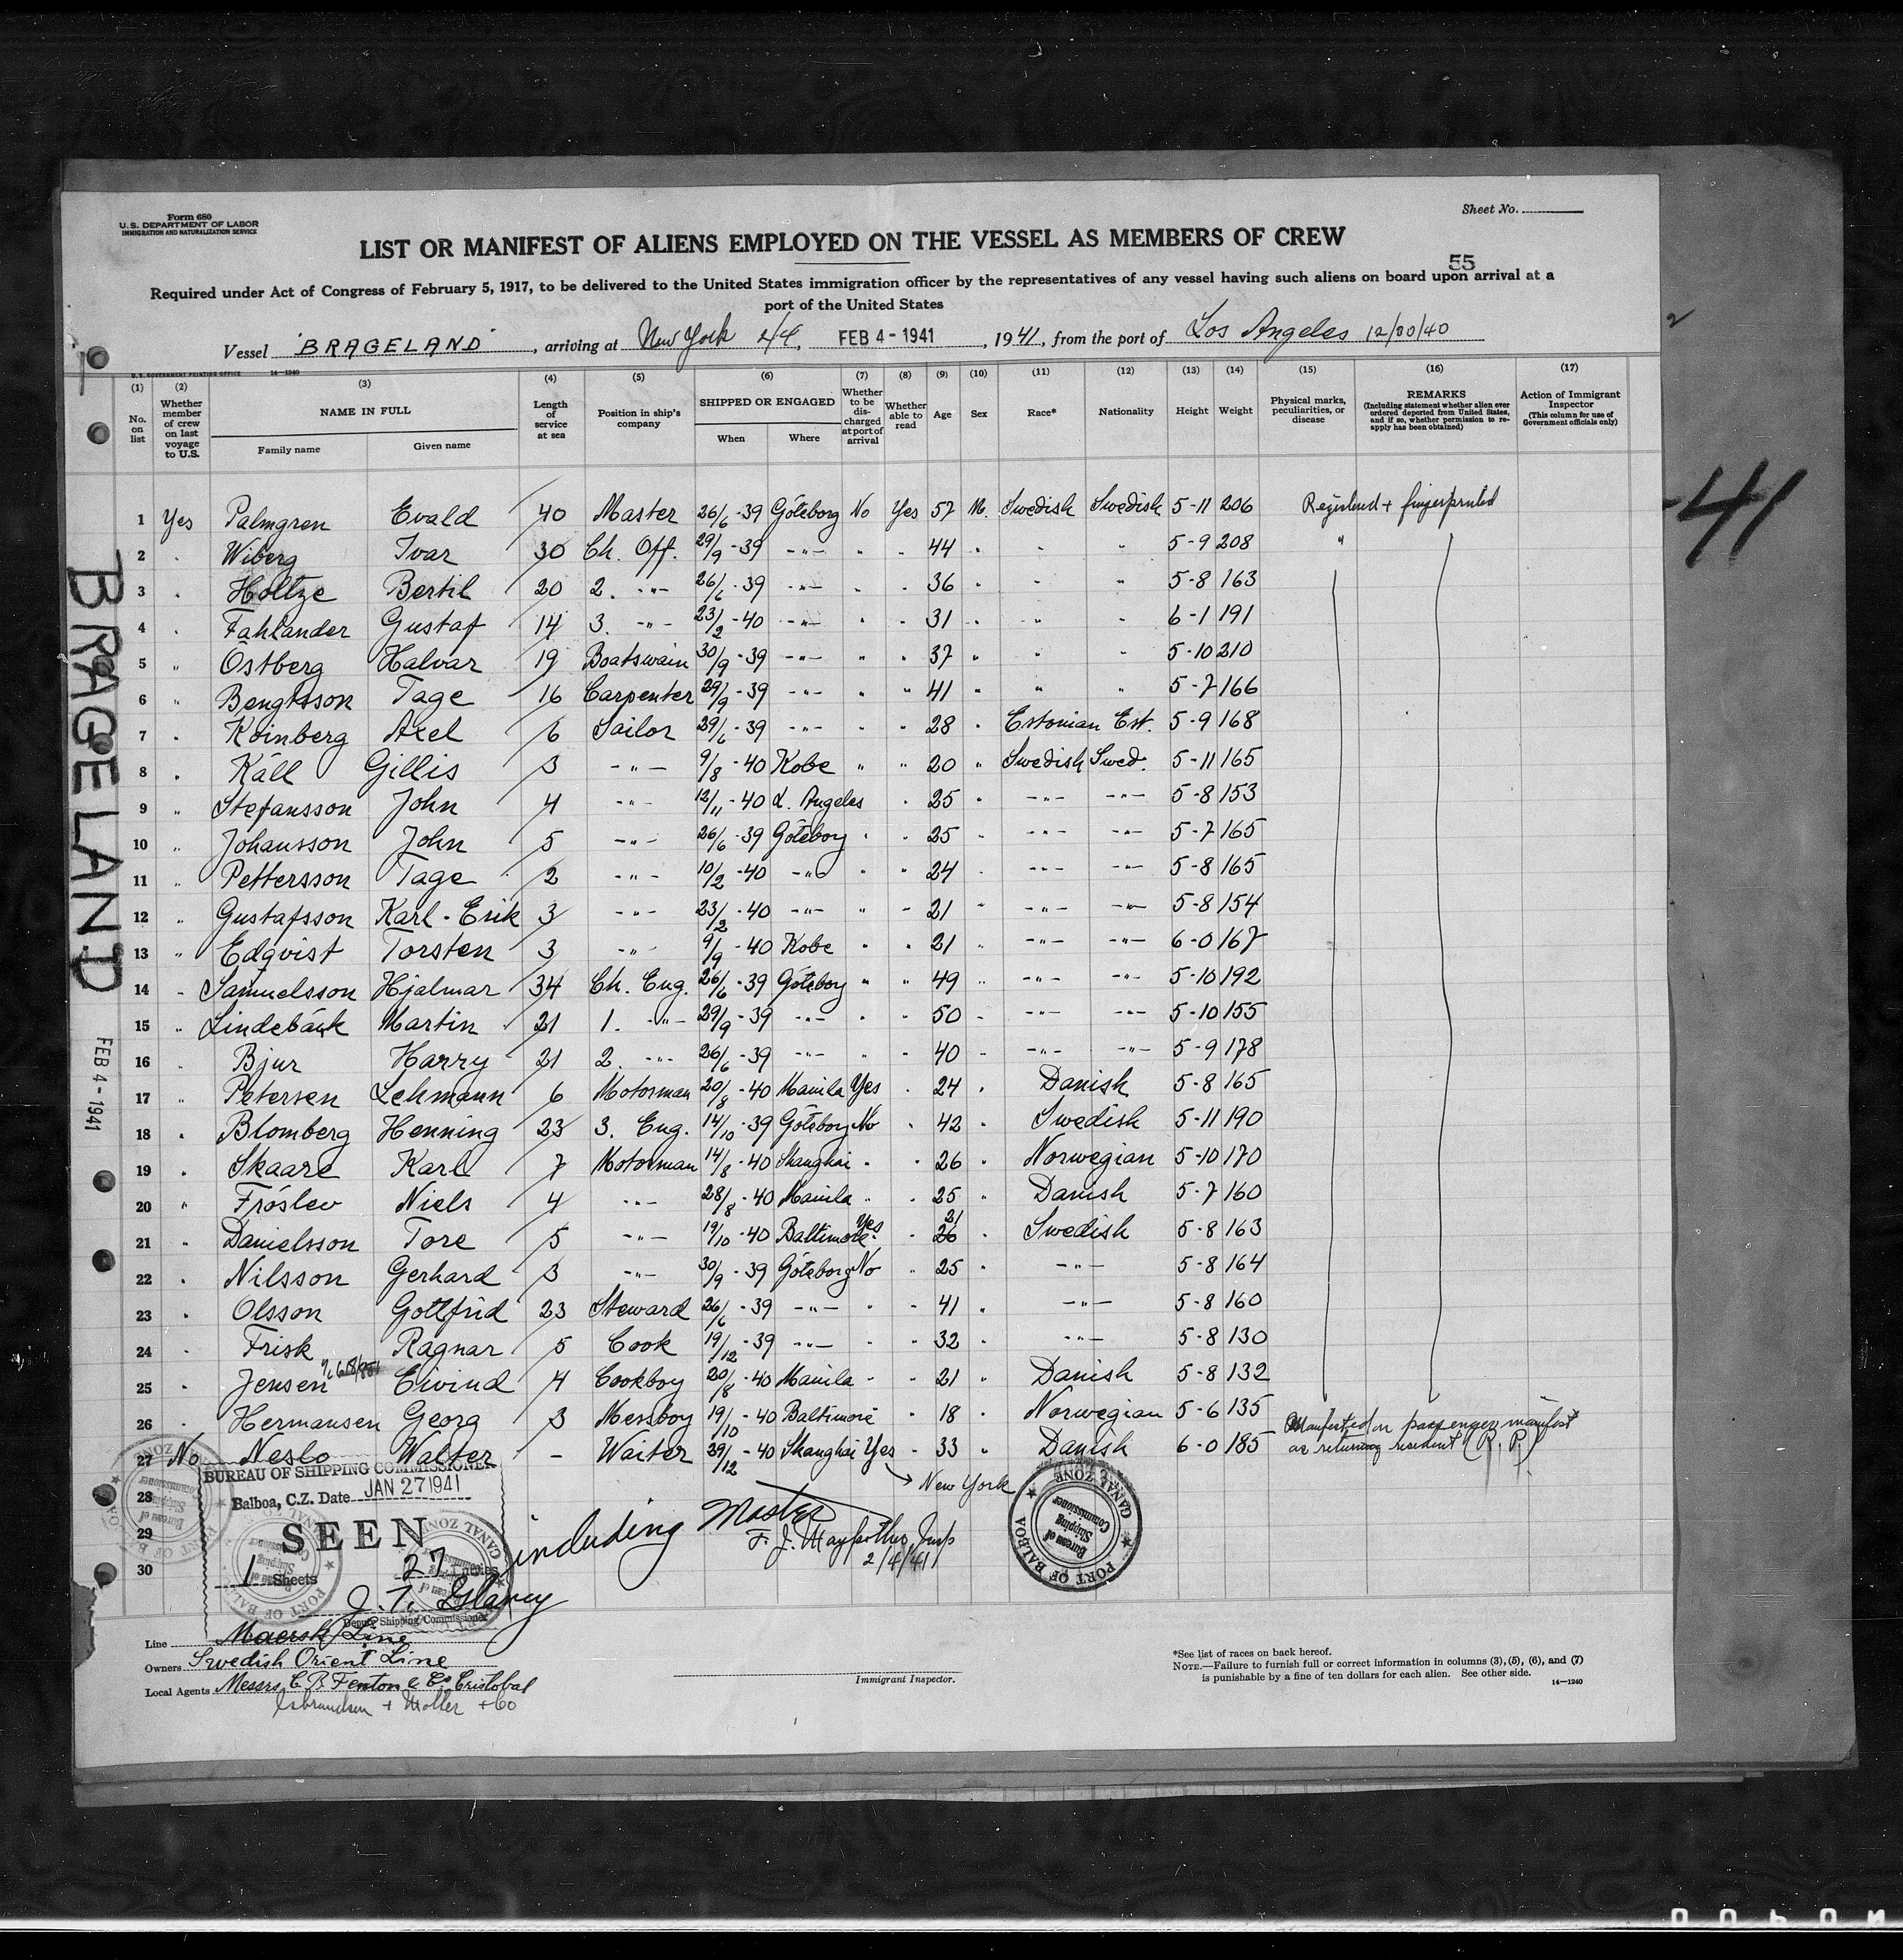 Form 680
U.S. DEPARTMENT OF LABOR
IMMIGRATION AND NATURALIZATION SERVICE
Sheet No.
LIST OR MANIFEST OF ALIENS EMPLOYED ON THE VESSEL AS MEMBERS OF CREW
55
Required under Act of Congress of February 5, 1917, to be delivered to the United States immigration officer by the representatives of any vessel having such aliens on board upon arrival at a
port of the United States
Vessel "BRAGELAND", arriving at New York 2/4, FEB 4-1941, 1941, from the port of Los Angeles 12/30/40
U.S. GOVERNMENT PRINTING OFFICE 14-1240
(1) (2) (3) (4) (5) (6) (7) (8) (9) (10) (11) (12) (13) (14) (15) (16) (17)
No. on list
Whether member of crew on last voyage to U.S.
NAME IN FULL
Family name
Given name
Length of service at sea
Position in ship's company
SHIPPED OR ENGAGED
When
Where
Whether to be discharged at port of arrival
Whether able to read
Age
Sex
Race*
Nationality
Height
Weight
Physical marks, peculiarities, or disease
REMARKS
(Including statement whether alien ever ordered deported from United States, and if so, whether permission to reapply has been obtained)
Action of Immigrant Inspector
(This column for use of Government officials only)
1 Yes Palmgren Evald 40 Master 26/6-39 Göteborg No Yes 57 M. Swedish Swedish 5-11 206 Registered + fingerprinted
2 " Wiberg Ivar 30 Ch. Off. 29/9-39 -"- " " 44 " " " 5-9 208 "
3 " Holtze Bertil 20 2. -"- 26/6-39 -"- " " 36 " " " 5-8 163
4 " Fahlander Gustaf 14 3. -"- 23/2-40 -"- " " 31 " " " 6-1 191
5 " Östberg Halvar 19 Boatswain 30/9-39 -"- " " 37 " " " 5-10 210
6 " Bengtsson Tage 16 Carpenter 29/9-39 -"- " " 41 " " " 5-7 166
7 " Koinberg Axel 6 Sailor 29/6-39 -"- " " 28 " Estonian Est. 5-9 168
8 " Käll Gillis 3 -"- 9/8-40 Kobe " " 20 " Swedish Swed. 5-11 165
9 " Stefansson John 4 -"- 12/11-40 L. Angeles " 25 " -"- -"- 5-8 153
10 " Johansson John 5 -"- 26/6-39 Göteborg " " 25 " -"- -"- 5-7 165
11 " Pettersson Tage 2 -"- 10/2-40 -"- " " 24 " -"- -"- 5-8 165
12 " Gustafsson Karl-Erik 3 -"- 23/2-40 -"- " " 21 " -"- -"- 5-8 154
13 " Edqvist Torsten 3 -"- 9/9-40 Kobe " " 21 " -"- -"- 6-0 167
14 " Samuelsson Hjalmar 34 Ch. Eng. 26/6-39 Göteborg " " 49 " -"- -"- 5-10 192
15 " Lindebäck Martin 21 1. -"- 29/9-39 -"- " " 50 " -"- -"- 5-10 155
16 " Bjur Harry 21 2. -"- 26/6-39 -"- " " 40 " -"- -"- 5-9 178
17 " Petersen Lehmann 6 Motorman 20/8-40 Manila Yes " 24 " Danish 5-8 165
18 " Blomberg Henning 23 3. Eng. 14/10-39 Göteborg No " 42 " Swedish 5-11 190
19 " Skaare Karl 7 Motorman 14/8-40 Shanghai " " 26 " Norwegian 5-10 170
20 " Fröslev Niels 4 -"- 28/8-40 Manila " " 25 " Danish 5-7 160
21 " Danielsson Tore 5 -"- 19/10-40 Baltimore Yes " 21 26 " Swedish 5-8 163
22 " Nilsson Gerhard 3 -"- 30/9-39 Göteborg No " 25 " -"- 5-8 164
23 " Olsson Gottfrid 23 Steward 26/6-39 -"- " " 41 " -"- 5-8 160
24 " Frisk Ragnar 5 Cook 19/12-39 -"- " " 32 " -"- 5-8 130
25 " Jensen Eivind 4 Cookboy 20/8-40 Manila " " 21 " Danish 5-8 132
26 " Hermansen Georg 3 Messboy 19/10-40 Baltimore " 18 " Norwegian 5-6 135
27 No Neslo Walter - Waiter 39/12-40 Shanghai Yes " 33 " Danish 6-0 185 Manifested on passenger manifest
as returning resident (R.P.)
New York
28
29
30
BUREAU OF SHIPPING COMMISSIONER
Balboa, C.Z. Date JAN 27 1941
SEEN
1 Sheets 27
including Master
2/4/41
Deputy Shipping Commissioner
PORT OF BALBOA
CANAL ZONE
Bureau of Shipping Commissioner
Line Maersk Line
Owners Swedish Orient Line
Local Agents Messrs C. B. Fenton & Co Cristobal
Isbrandsen + Moller + Co
Immigrant Inspector.
*See list of races on back hereof.
NOTE.—Failure to furnish full or correct information in columns (3), (5), (6), and (7)
is punishable by a fine of ten dollars for each alien. See other side.
14-1240
BRAGELAND
FEB 4-1941
41
2